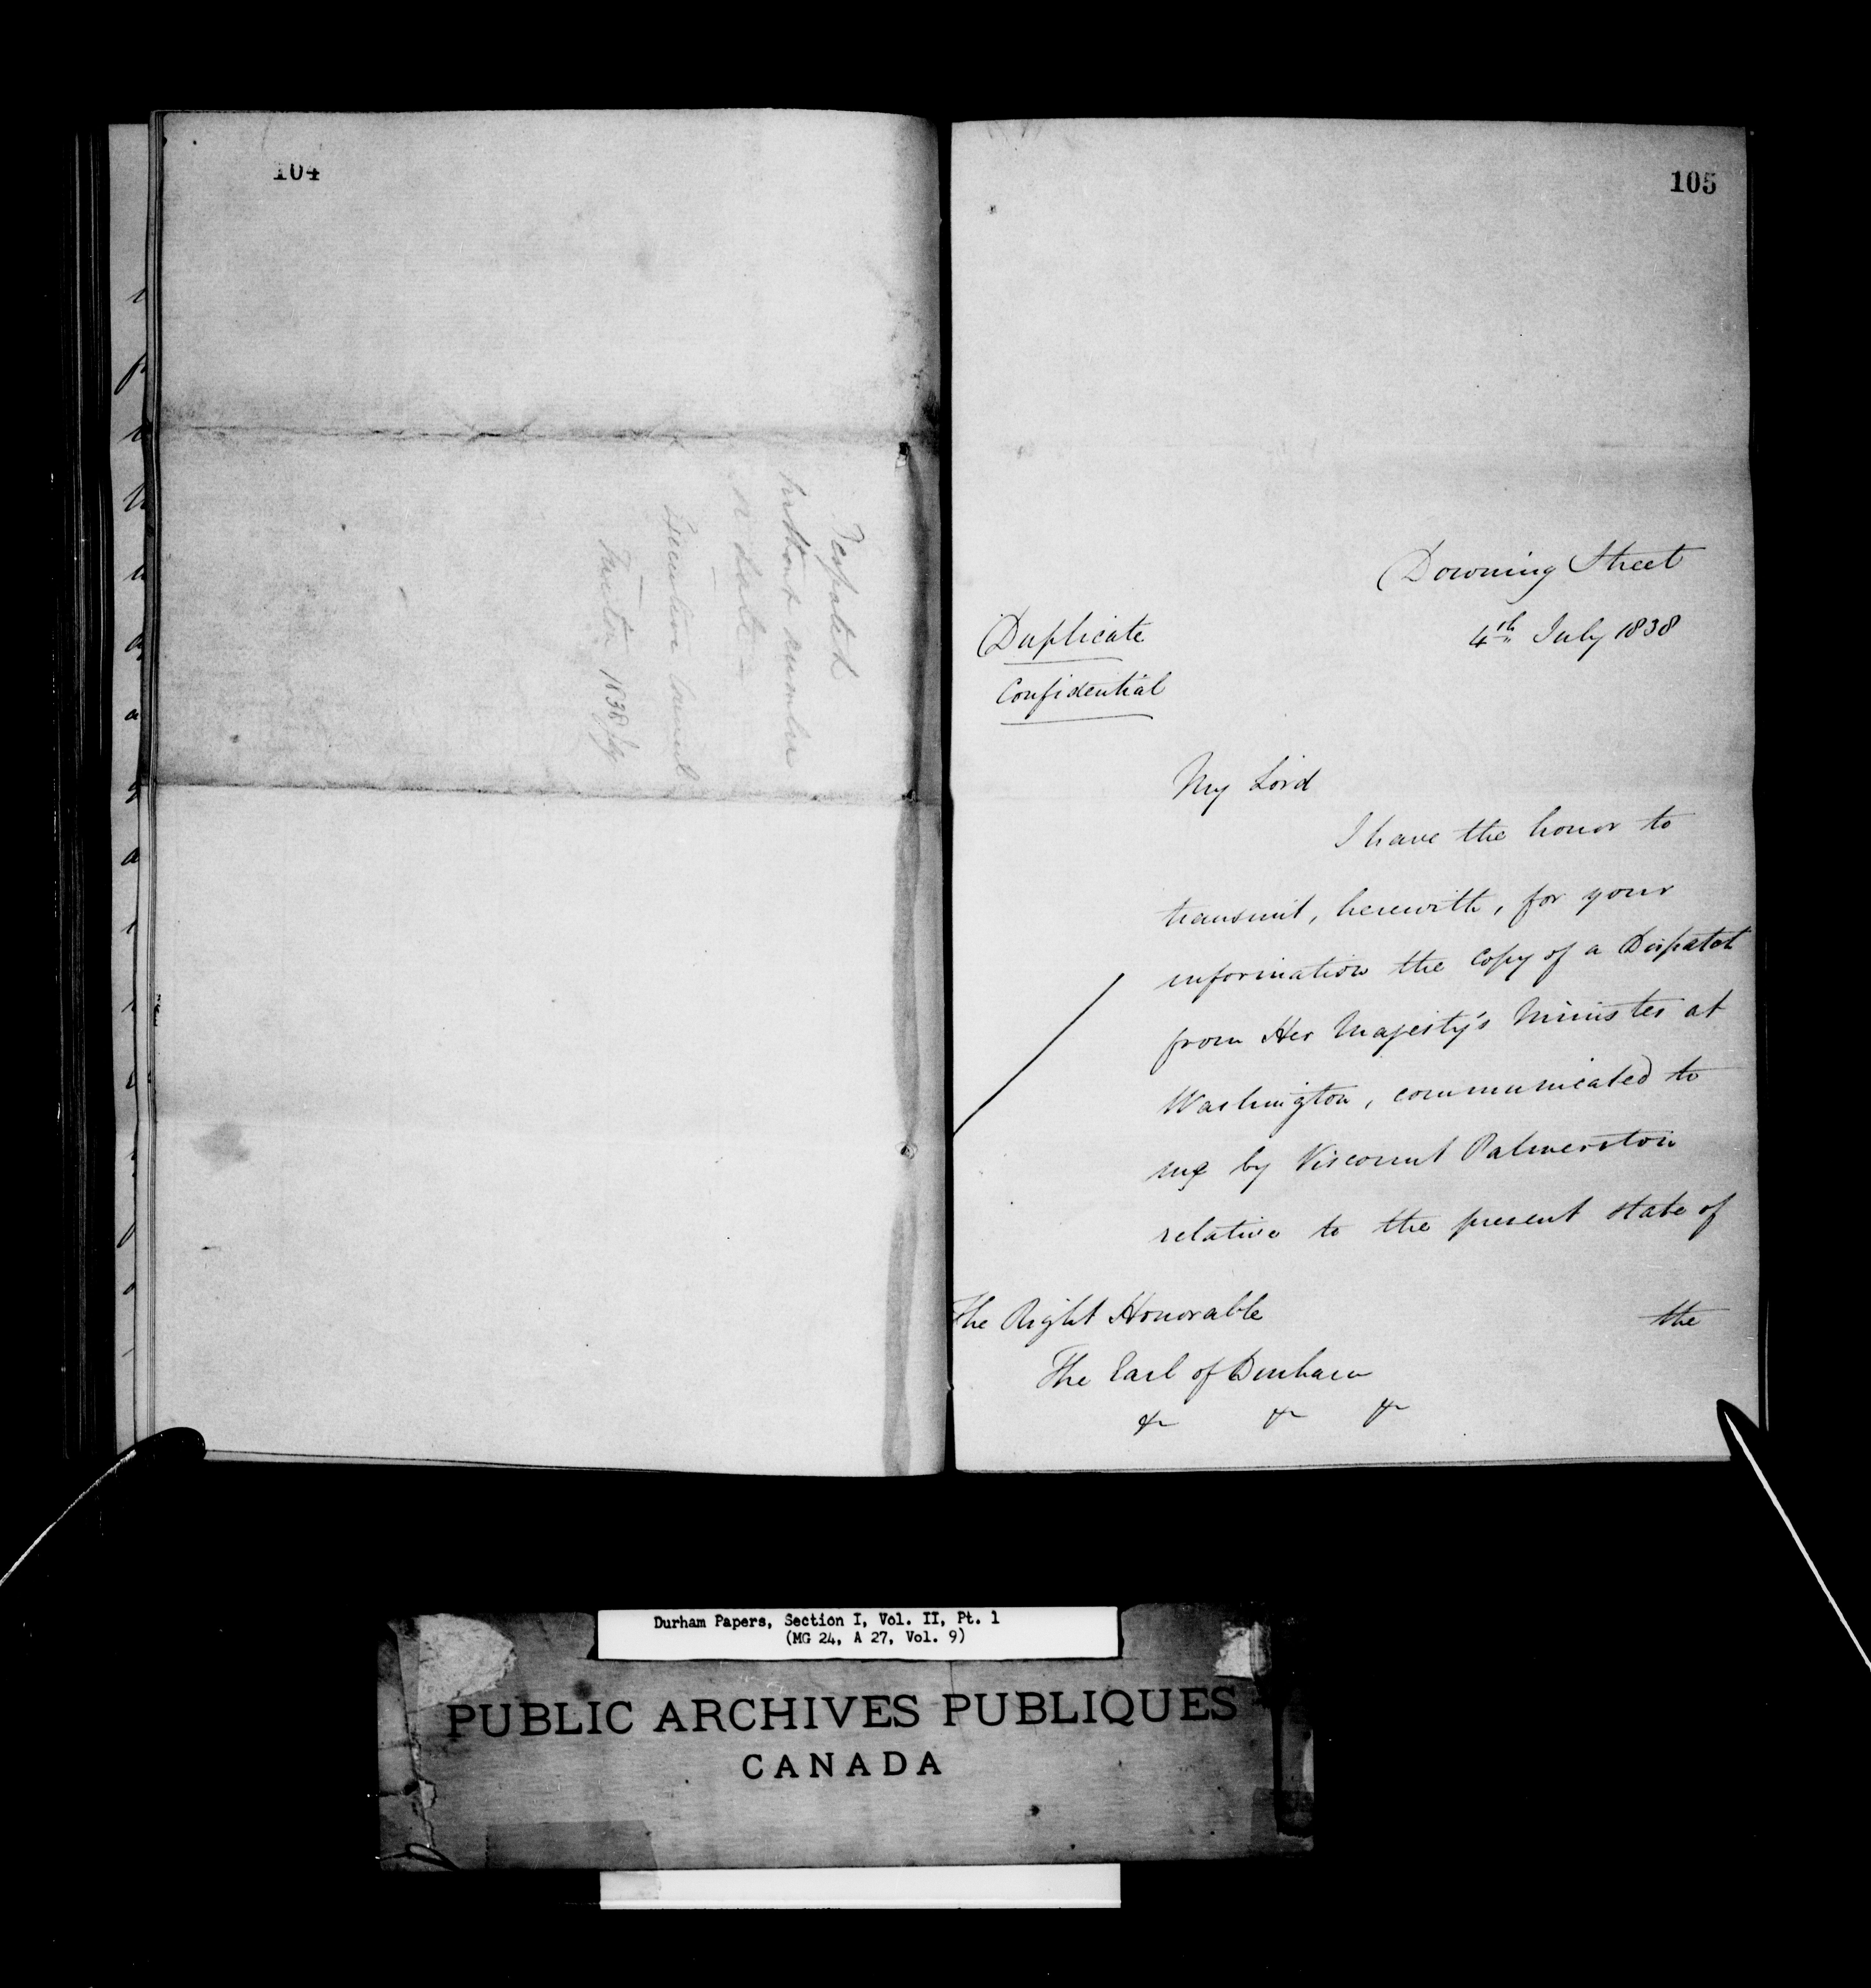 104
Despatch
without number
or date
Executive Council
1838
105
Downing Street
4th July 1838
Duplicate
Confidential
My Lord
I have the honor to
transmit, herewith, for your
information the Copy of a Dispatch
from Her Majesty's Minister at
Washington, communicated to
me by Viscount Palmerston
relative to the present state of
the
The Right Honorable
The Earl of Durham
&c &c &c
Durham Papers, Section I, Vol. II, Pt. 1
(MG 24, A 27, Vol. 9)
PUBLIC ARCHIVES PUBLIQUES
CANADA